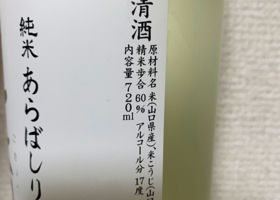 清酒
原材料名 米(山口県産)、米こうじ(山口
精米歩合 60% アルコール分 17度
内容量 720ml
純米 あらばしり